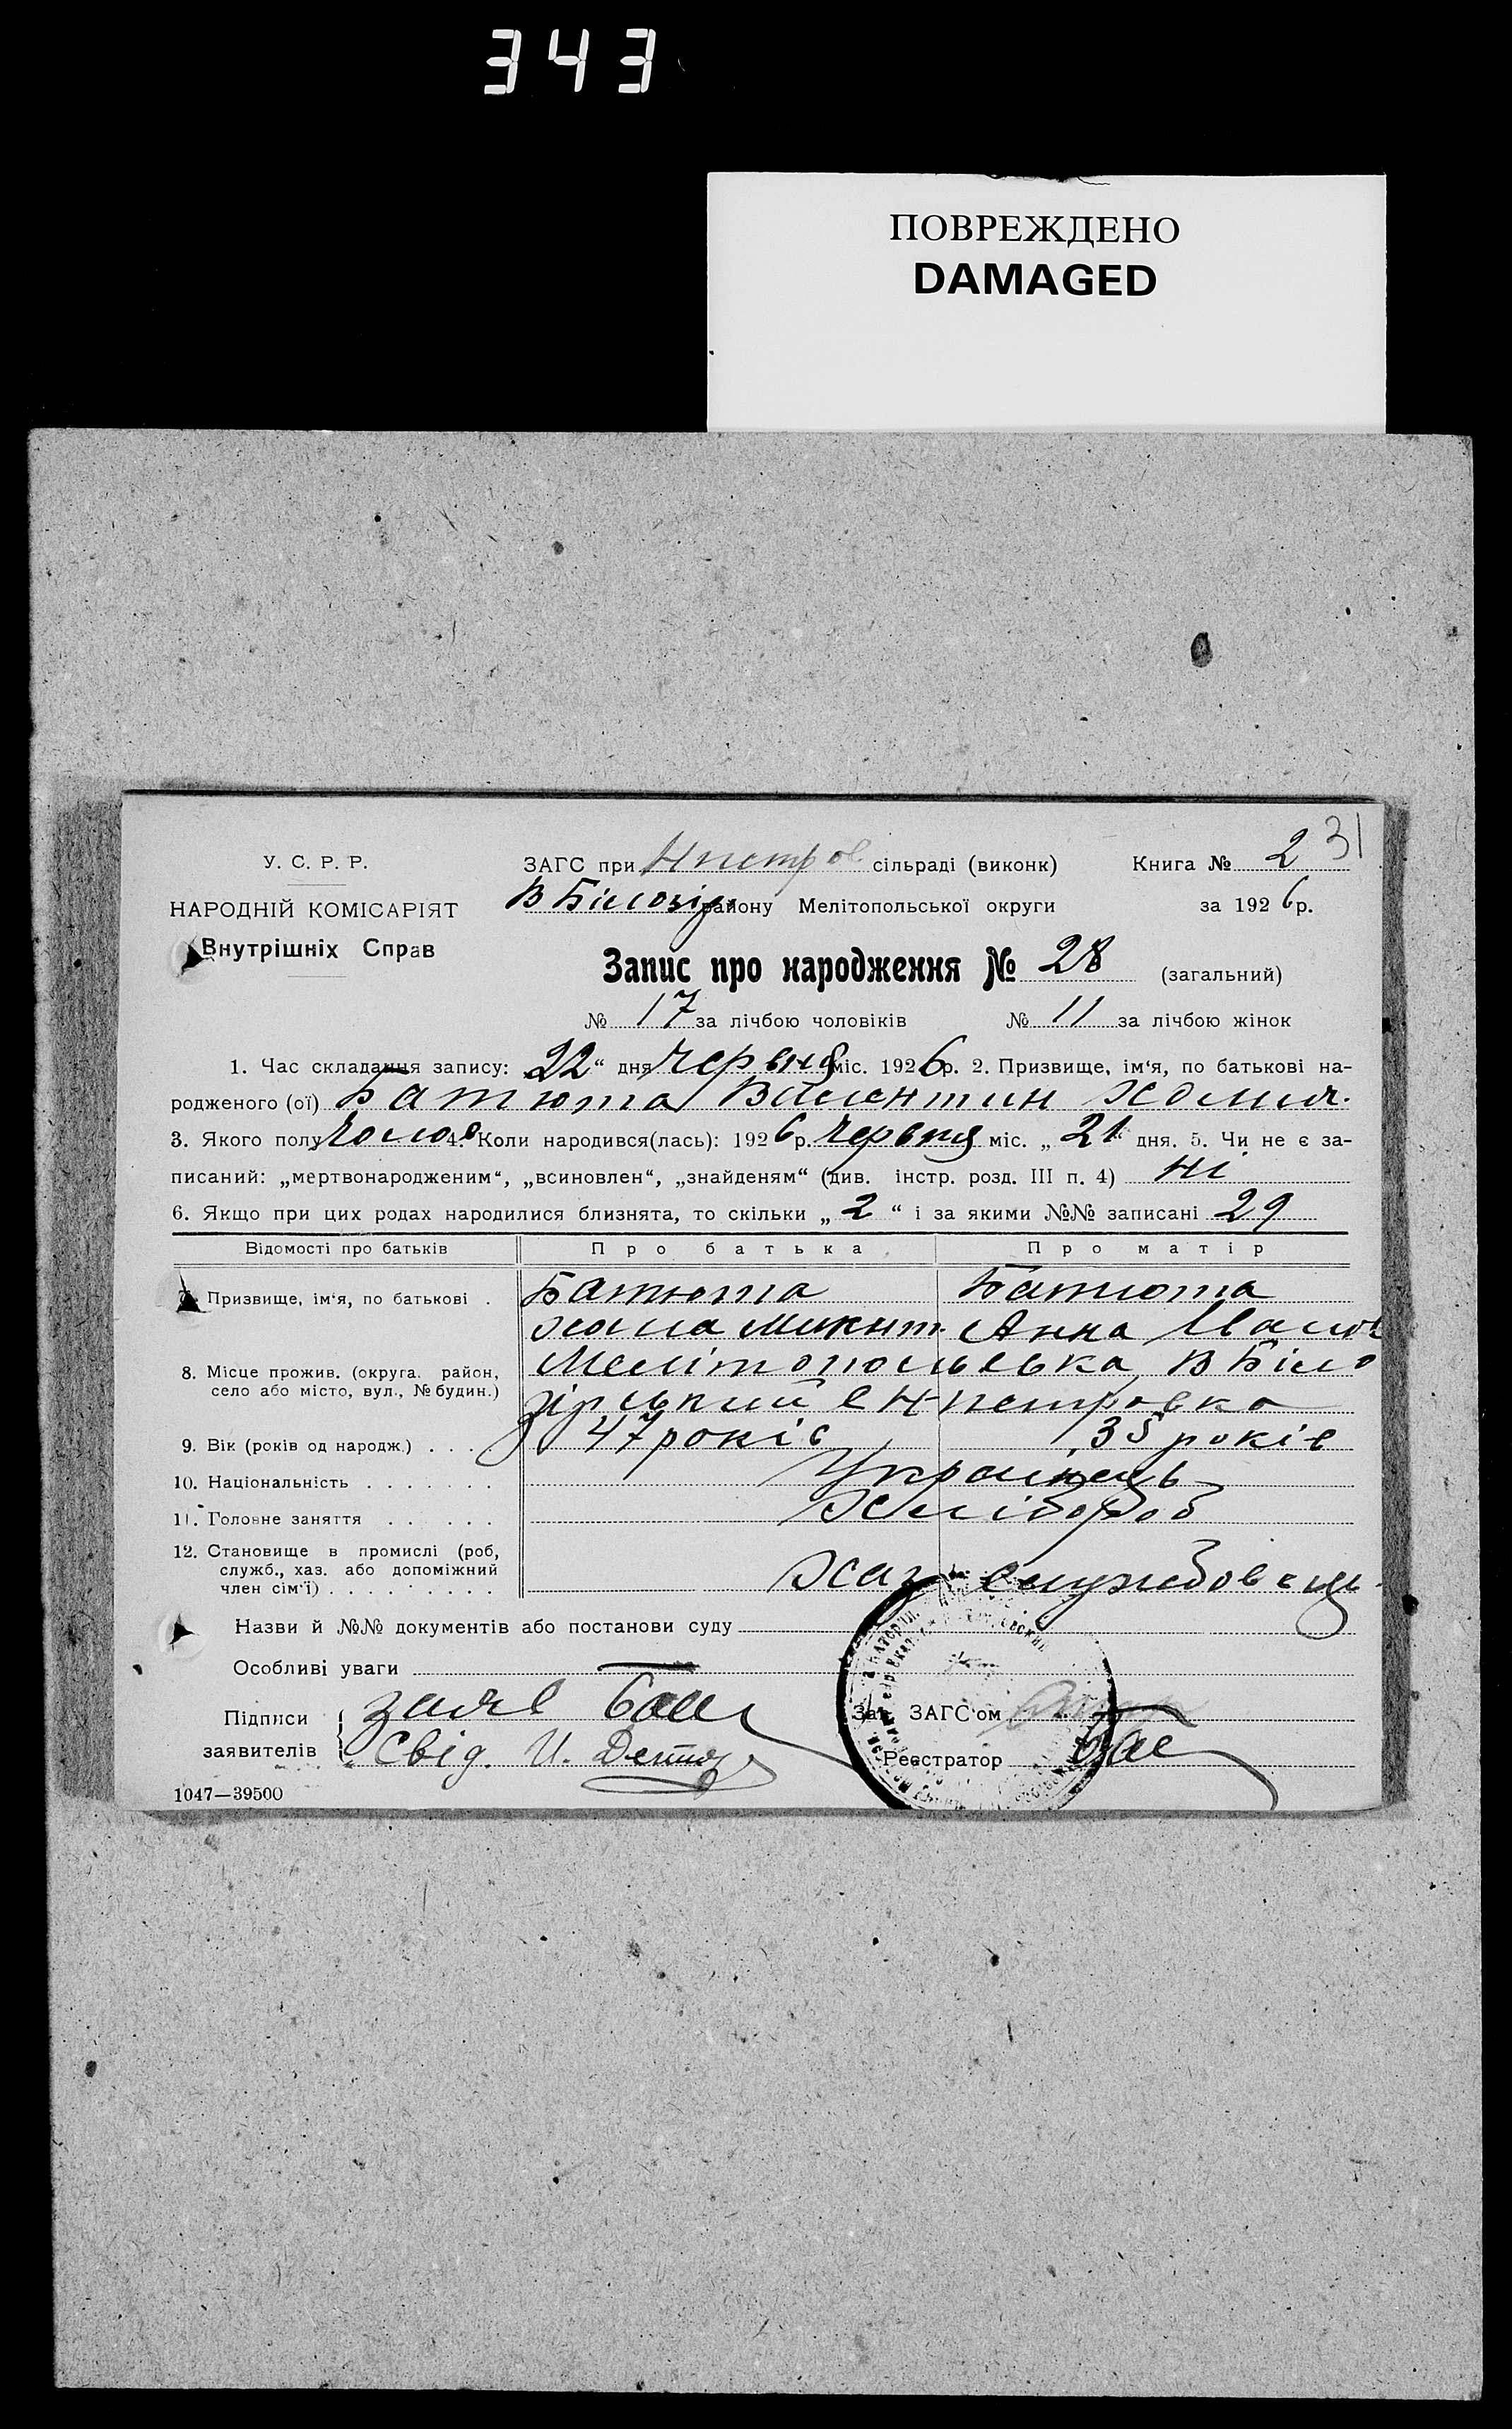 343
ПОВРЕЖДЕНО
DAMAGED
31
У. С. Р. Р.
НАРОДНІЙ КОМІСАРІЯТ
Внутрішніх Справ
ЗАГС при Нпетров сільраді (виконк) Книга № 2
В Білозір району Мелітопольської округи за 1926р.
Запис про народження № 28 (загальний)
№ 17 за лічбою чоловіків № 11 за лічбою жінок
1. Час складання запису: 22“ дня червня міс. 1926р. 2. Призвище, ім‘я, по батькові на-
родженого (ої) Батюта Валентин
3. Якого полу чолов 4. Коли народився(лась): 1926р. червня міс. „21“ дня. 5. Чи не є за-
писаний: „мертвонародженим“, „всиновлен“, „знайденям“ (див. інстр. розд. III п. 4) Ні
6. Якщо при цих родах народилися близнята, то скільки „2“ і за якими №№ записані 29
Відомості про батьків Про батька Про матір
7. Призвище, ім‘я, по батькові . Батюта Батюта
Хома Микит. Анна Иванов
8. Місце прожив. (округа, район, Мелітопольська, В Біло
село або місто, вул., № будин.) зірський с Нпетровка
9. Вік (років од народж.) . . . 47 років 35 років
10. Національність . . . . . . . Українець
11. Головне заняття . . . . . Хлібороб
12. Становище в промислі (роб,
служб., хаз. або допоміжний
член сім‘ї) . . . . . . . . . Хаз
Назви й №№ документів або постанови суду
Особливі уваги
Підписи заяв Бат
заявителів Свід. И.
Зав. ЗАГС‘ом
Реєстратор
1047—39500